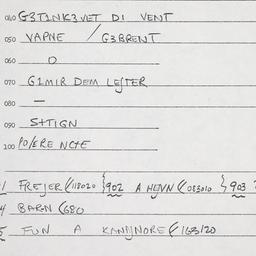 040 G3T1NK3VET DI VENT
050 VAPNE / G3BRENT
060 O
070 G1MIR DEM LEJTER
080 —
090 S+TIGN
100
FREJER (118020 } 902 A HEJVN (083010 } 903
BARN (680
FUN A KANJNORE (163120